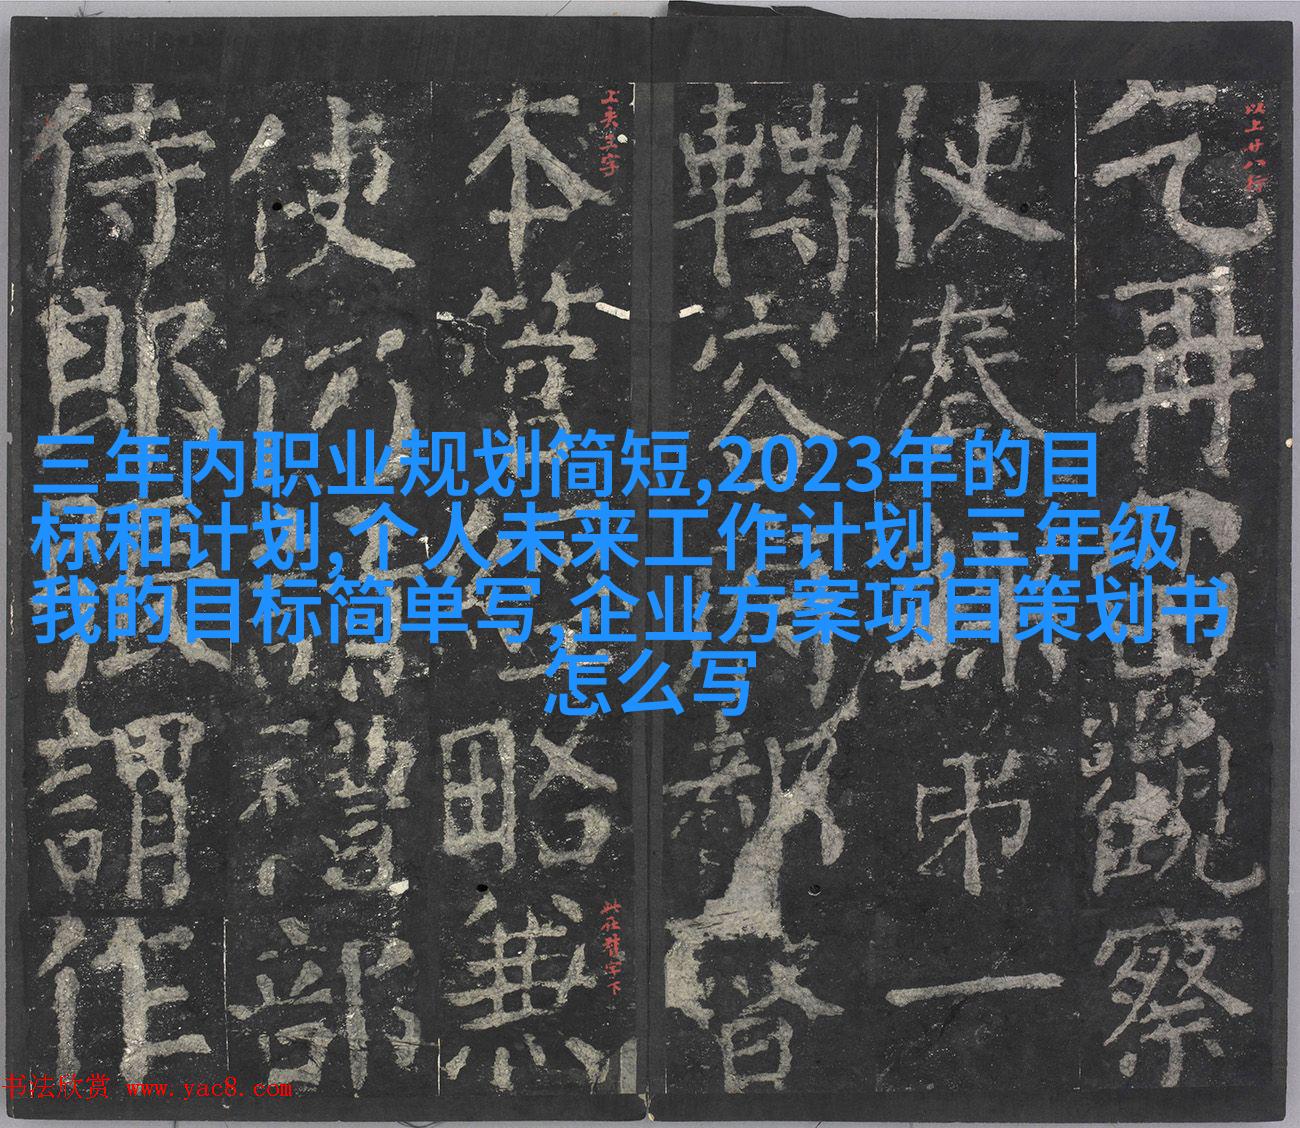 三年内职业规划简短,2023年的目
标和计划,个人未来工作计划,三年级
我的目标简单写,企业方案项目策划书
怎么写
乞再
觀察
以上廿八行
使奏
弟一
轉
督
本營
略無
上夹三字
此在精字下
使
禮部
侍郎
謂作
书法欣赏 www.yac8.com